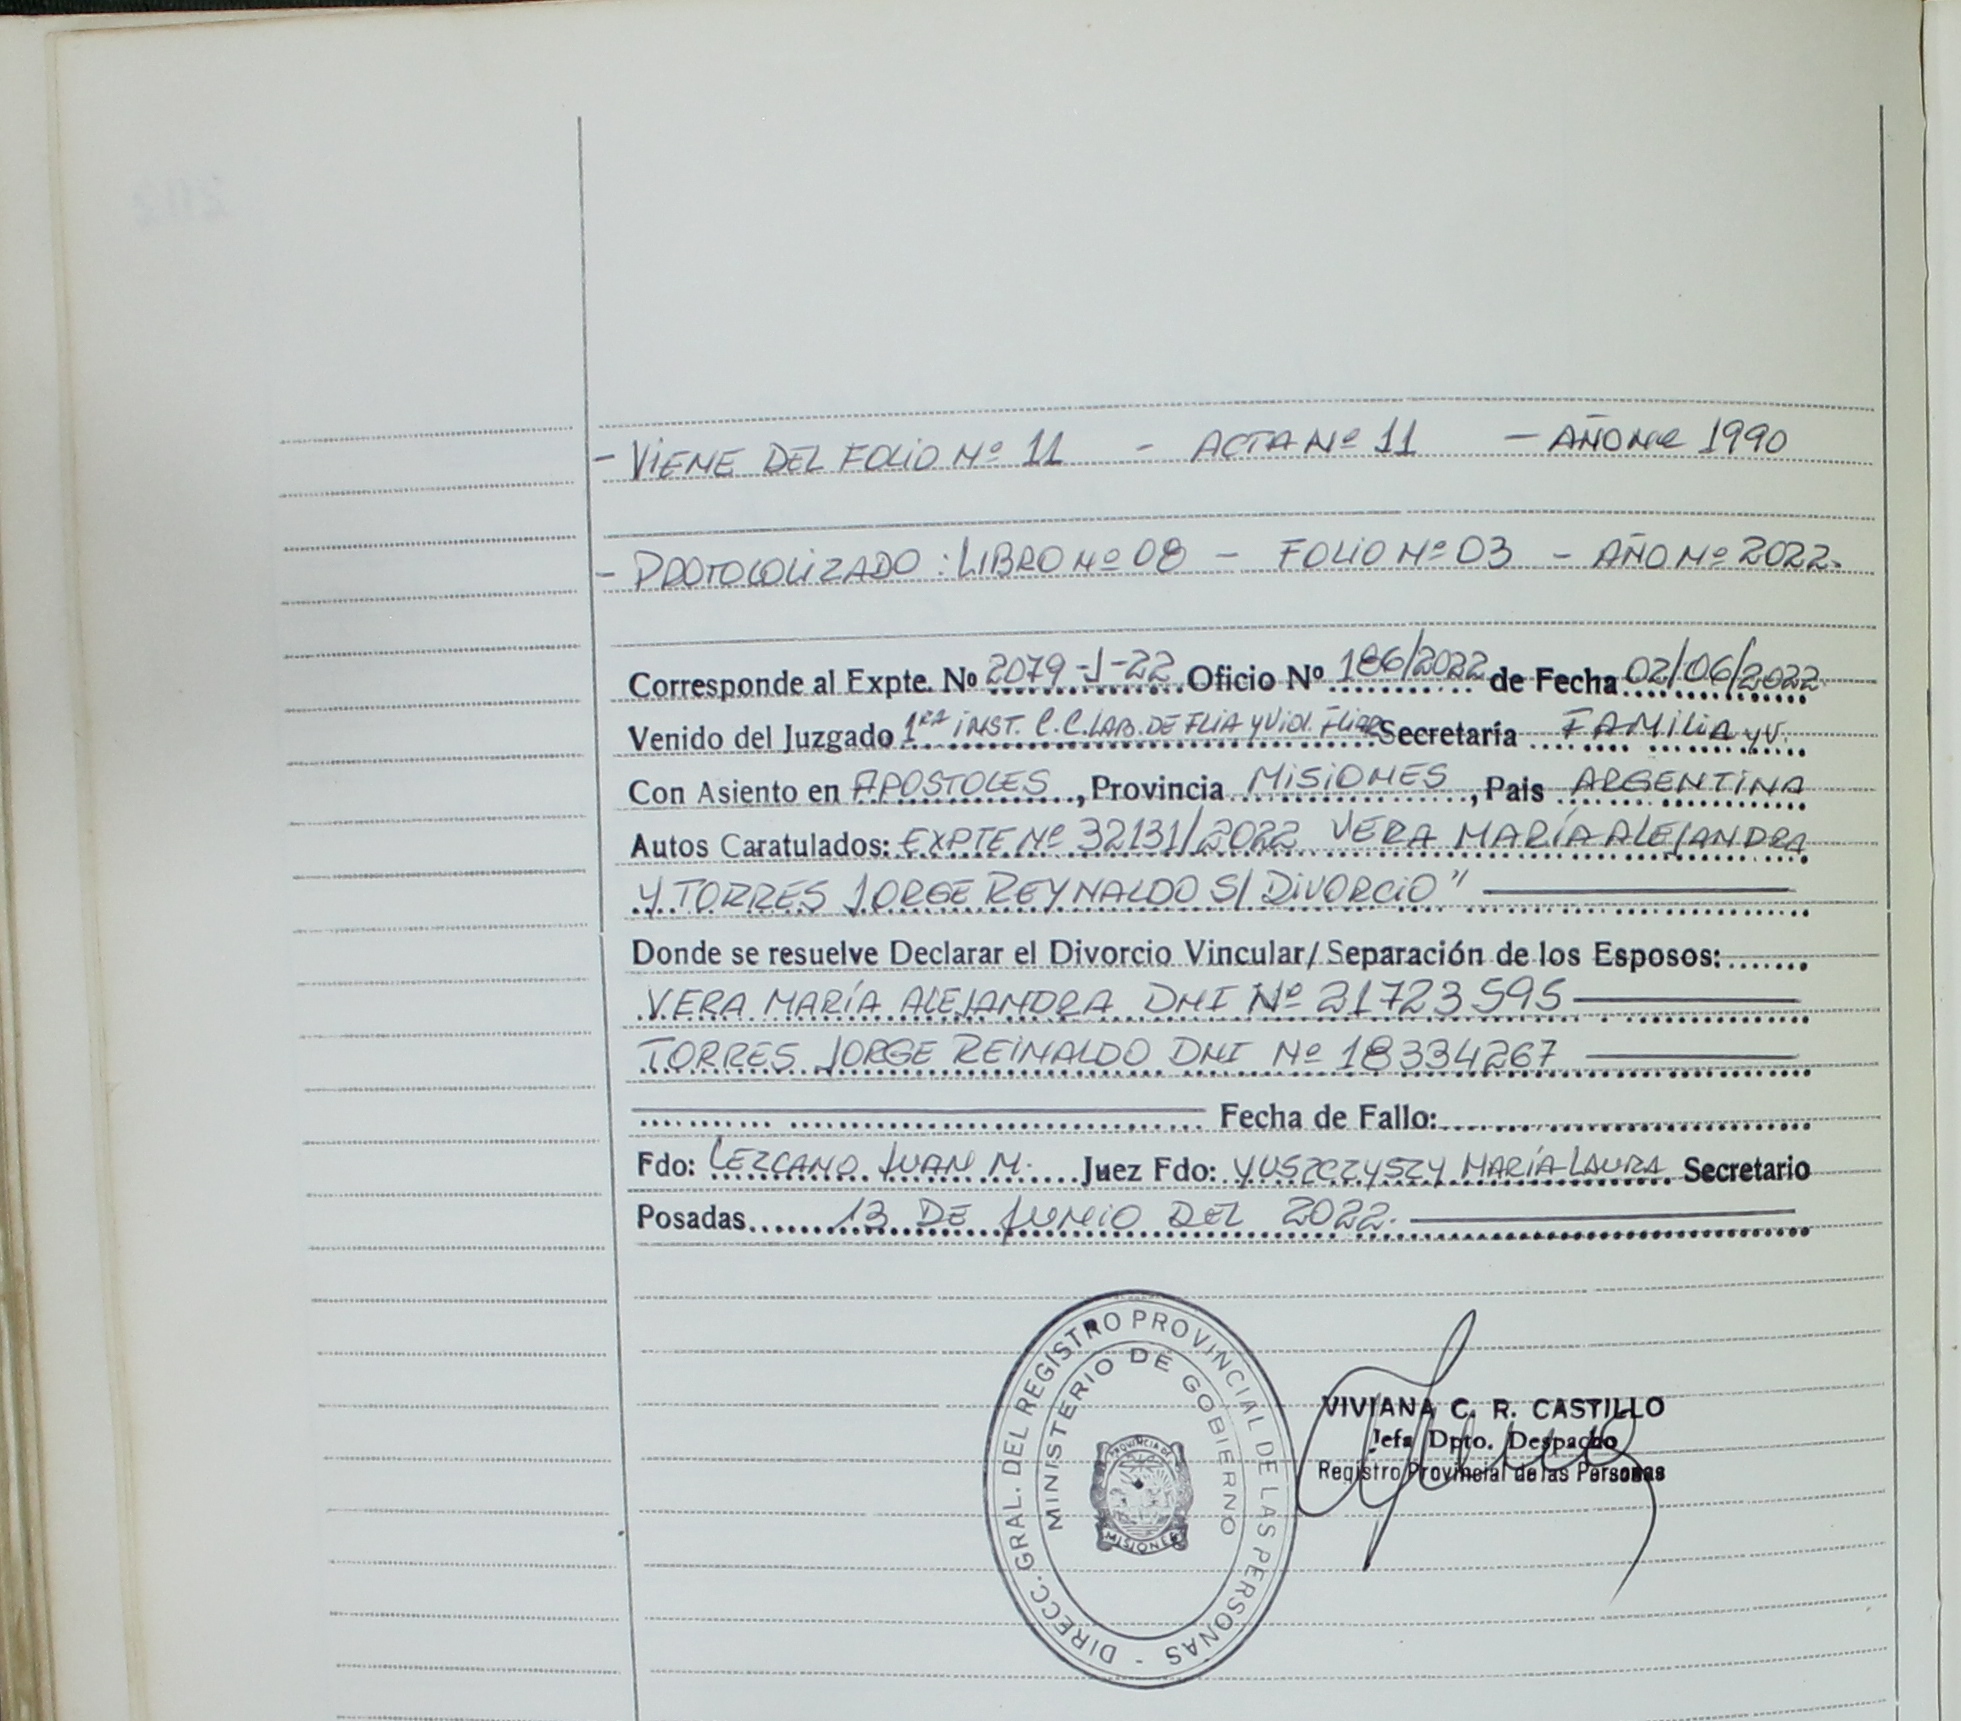 - VIENE DEL FOLIO Nº 11 - ACTA Nº 11 - AÑO Nº 1990
- PROTOCOLIZADO: LIBRO Nº 08 - FOLIO Nº 03 - AÑO Nº 2022.
Corresponde al Expte. Nº 2079-J-22 Oficio Nº 186/2022 de Fecha 02/06/2022
Venido del Juzgado 1RA INST. C.C. LAB. DE FLIA Y VIOL. FLIAR Secretaría FAMILIA y V.
Con Asiento en APOSTOLES, Provincia MISIONES, Pais ARGENTINA
Autos Caratulados: EXPTE Nº 32131/2022 VERA MARÍA ALEJANDRA
Y TORRES JORGE REYNALDO S/ DIVORCIO"
Donde se resuelve Declarar el Divorcio Vincular/Separación de los Esposos:
VERA MARÍA ALEJANDRA DNI Nº 21723595
TORRES JORGE REINALDO DNI Nº 18334267
Fecha de Fallo:
Fdo: LEZCANO JUAN M. Juez Fdo: YUSZCZYSZY MARÍA LAURA Secretario
Posadas 13 DE JUNIO DEL 2022.
DIRECC. GRAL. DEL REGISTRO PROVINCIAL DE LAS PERSONAS -
MINISTERIO DE GOBIERNO
PROVINCIA DE
MISIONES
VIVIANA C. R. CASTILLO
Jefa Dpto. Despacho
Registro Provincial de las Personas